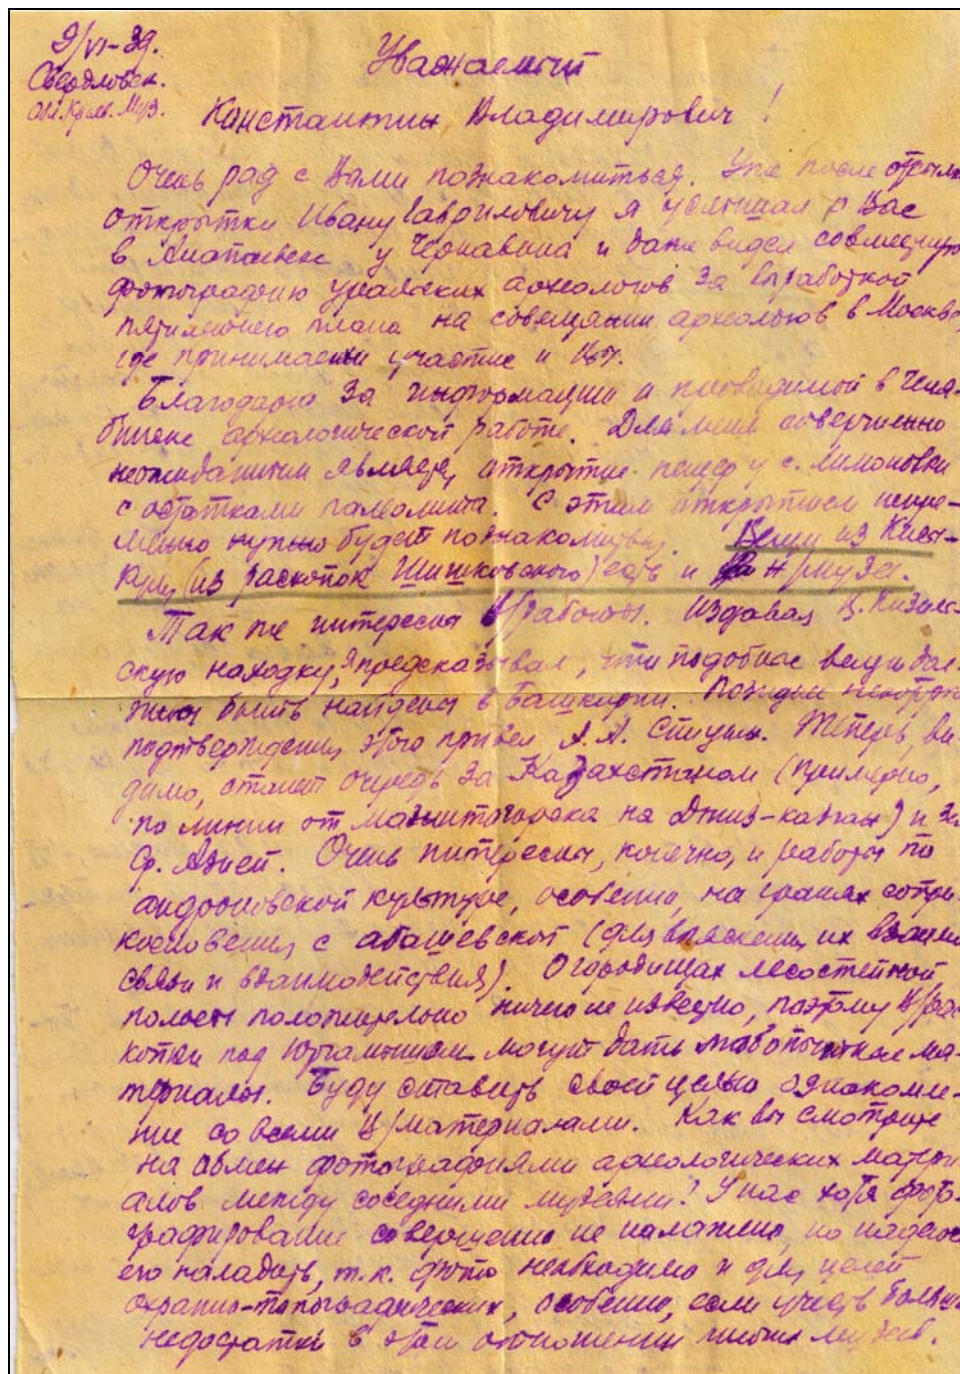 9/VI-39.
Свердловск.
Обл. Краев. Муз.
Уважаемый
Константин Владимирович!
Очень рад с Вами познакомиться. Уже после
открытки Ивану Гавриловичу я услышал о Вас
в у Чернавина и даже видел совместную
фотографию уральских археологов за выработкой
пятилетнего плана на совещании археологов в Москве,
где принимаете участие и Вы.
Благодарю за информации о проводимой в Челя-
бинске археологической работе. Для меня совершенно
неожиданным является открытие пещер у с.
с остатками палеолита. С этим открытием непре-
менно нужно будет познакомиться. Вещи из Кисы-
куля (из раскопок Шишковского) есть и
Так же интересны В/работы. Издавая
скую находку, я предсказывал, что подобные вещи дол-
жны быть найдены в Башкирии. Позднее
подтверждения этого привел А. А. Теперь, ви-
димо, станет очередь за Казахстаном (примерно,
по линии от Магнитогорска на Джиз-казган) и за
Ср. Азией. Очень интересны, конечно, и работы по
андроновской культуре, особенно, на гранях сопри-
косновения с абашевской (для выяснения их взаимо
связи и взаимодействия). О городищах лесостепной
полосы положительно ничего не известно, поэтому В/рас-
копки под Юргамышем могут дать любопытные ма-
териалы. Буду ставить своей целью ознакомле-
ние со всеми В/материалами. Как вы смотрите
на обмен фотографиями археологических матери
алов между соседними музеями? У нас хотя фото-
графирование совершенно не налажено, но надеюсь
его наладить, т.к. фото необходимо и для целей
охранно-топографических, особенно, если учесть
недостатки в этом отношении музеев.